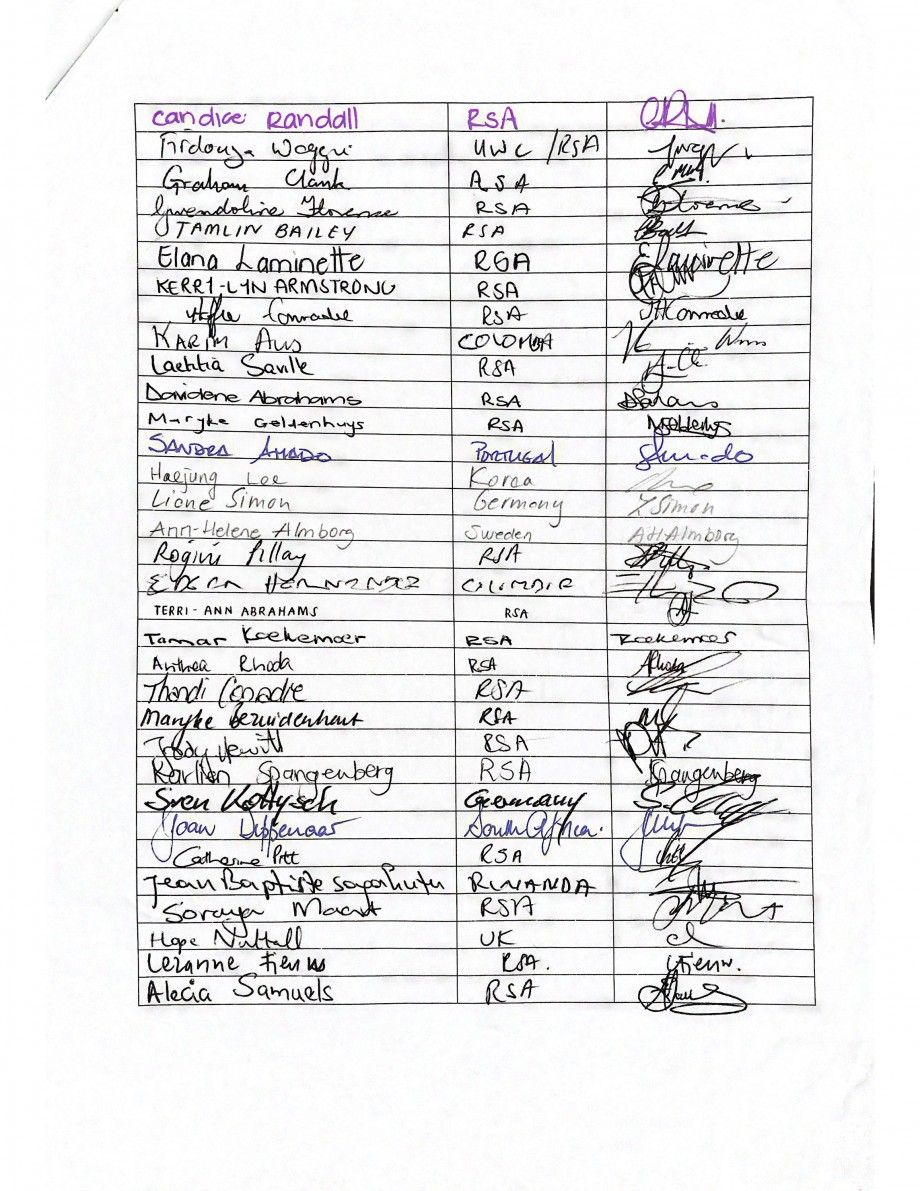 Candice Randall RSA
Firdouza Waggie UWC /RSA
Graham Clark RSA
Gwendoline Florence RSA
TAMLIN BAILEY RSA
Elana Laminette RSA E Laminette
KERRI-LYN ARMSTRONG RSA
Conradie RSA Conradie
KARIM RSA COLOMBIA
Laetitia Saville RSA
Davidene Abrahams RSA
Maryke Geldenhuys RSA
SANDRA AMADO PORTUGAL Amado
Haejung Lee Korea
Liane Simon Germany L Simon
Ann-Helene Almborg Sweden AH Almborg
Rogini Pillay RSA
HERNANDEZ
TERRI-ANN ABRAHAMS RSA
Tamar Koekemoer RSA Koekemoer
Anthea Rhoda RSA ARhoda
Thandi Conradie RSA
Maryke Bezuidenhout RSA
Hewitt RSA
Karlien Spangenberg RSA Spangenberg
Sven Germany
Joan Dippenaar South Africa.
Catherine Pitt RSA
Jean Baptiste Sagahutu RWANDA
Soraya Maart RSA
Hope Nuttall UK
Lezanne RSA.
Alecia Samuels RSA